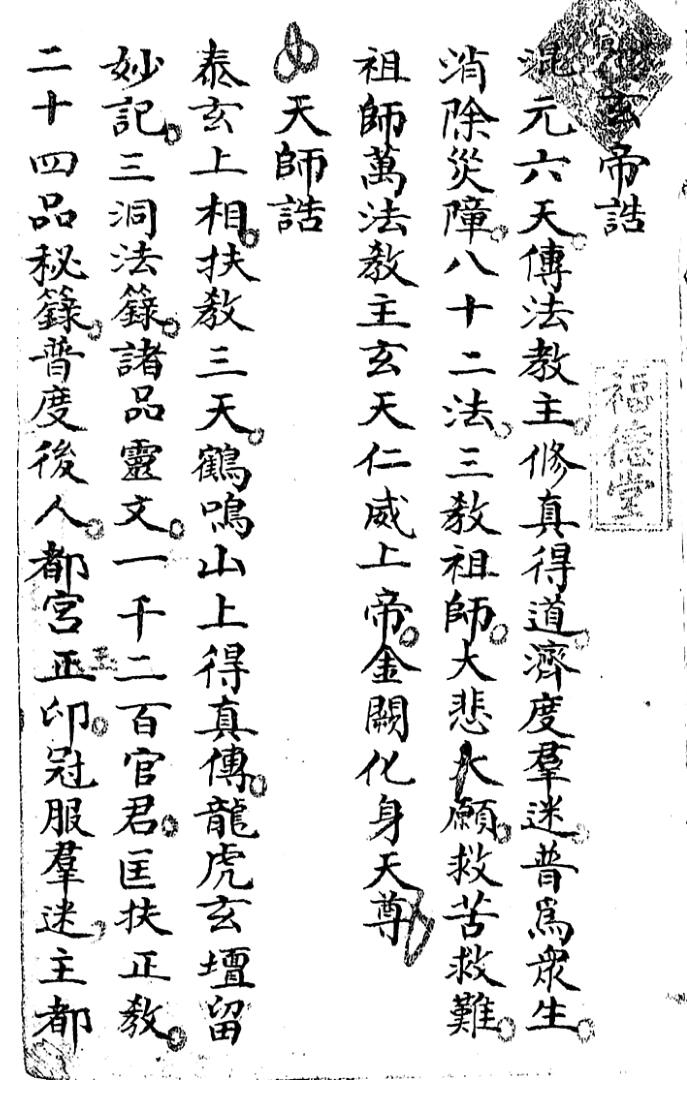 玄帝誥
混元六天。傳法教主。修真得道。濟度羣迷。普爲衆生。
消除災障。八十二法。三教祖師。大悲大願。救苦救難。
祖師萬法教主玄天仁威上帝。金闕化身天尊
天師誥
泰玄上相。扶教三天。鶴鳴山上得真傳。龍虎玄壇留
妙記。三洞法籙。諸品靈文。一千二百官君。匡扶正教。
二十四品秘籙。普度後人。都宮正印。冠服羣迷。主都
福德堂